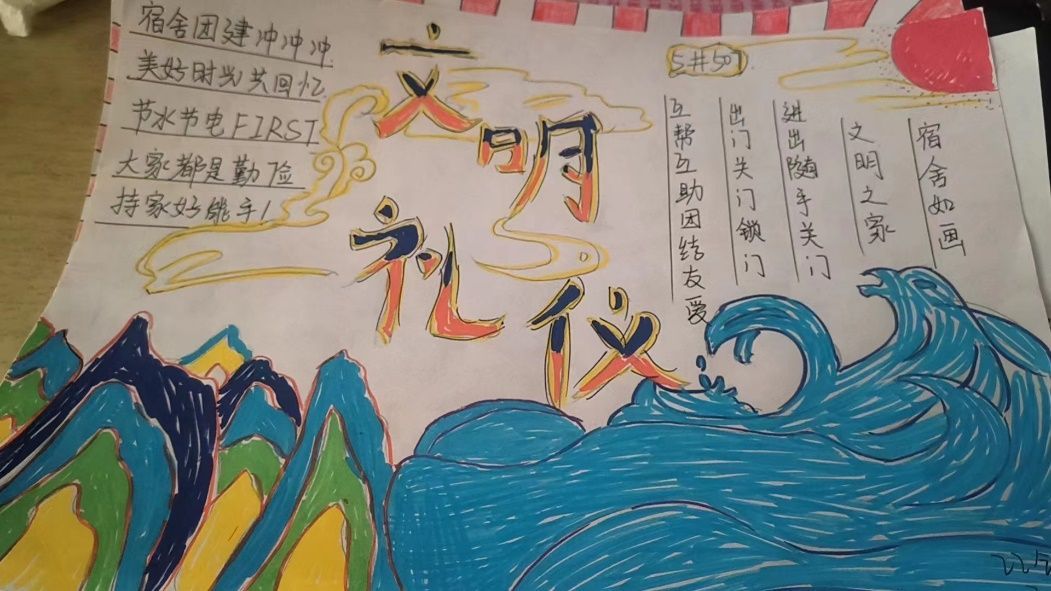 宿舍团建冲冲冲
美好时光共回忆
节水节电FIRST
大家都是勤险
持家好能手!
文明
礼仪
5#507
宿舍如画
文明之家
进出随手关门
出门关门锁门
互帮互助因结友爱